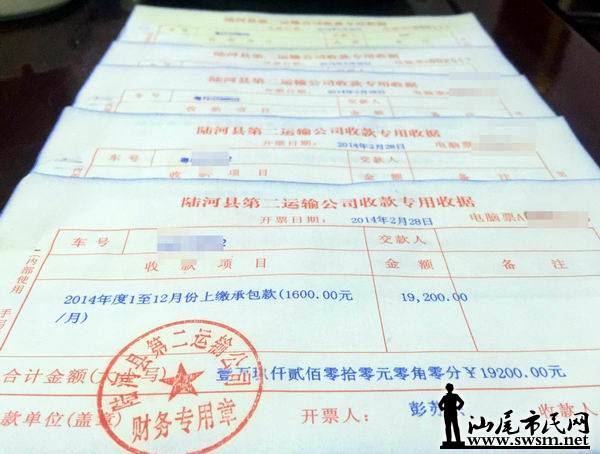 陆河县第二运输公司收款专用收据
陆河县第二运输公司收款专用收据
陆河县第二运输公司收款专用收据
2014年2月28日
陆河县第二运输公司收款专用收据
开票日期: 2014年2月28日 电脑票
车号 交款人
收款项目 金额 备注
陆河县第二运输公司收款专用收据
开票日期: 2014年2月28日 电脑票A
车号 2 交款人
收款项目 金额 备注
2014年度1至12月份上缴承包款(1600.00元/月) 19,200.00
(内部使用 手写
合计金额(大写) 壹万玖仟贰佰零拾零元零角零分￥19200.00元
款单位(盖章) 开票人: 彭苏 收款人
陆河县第二运输公司
财务专用章
汕尾市民网
www.swsm.net